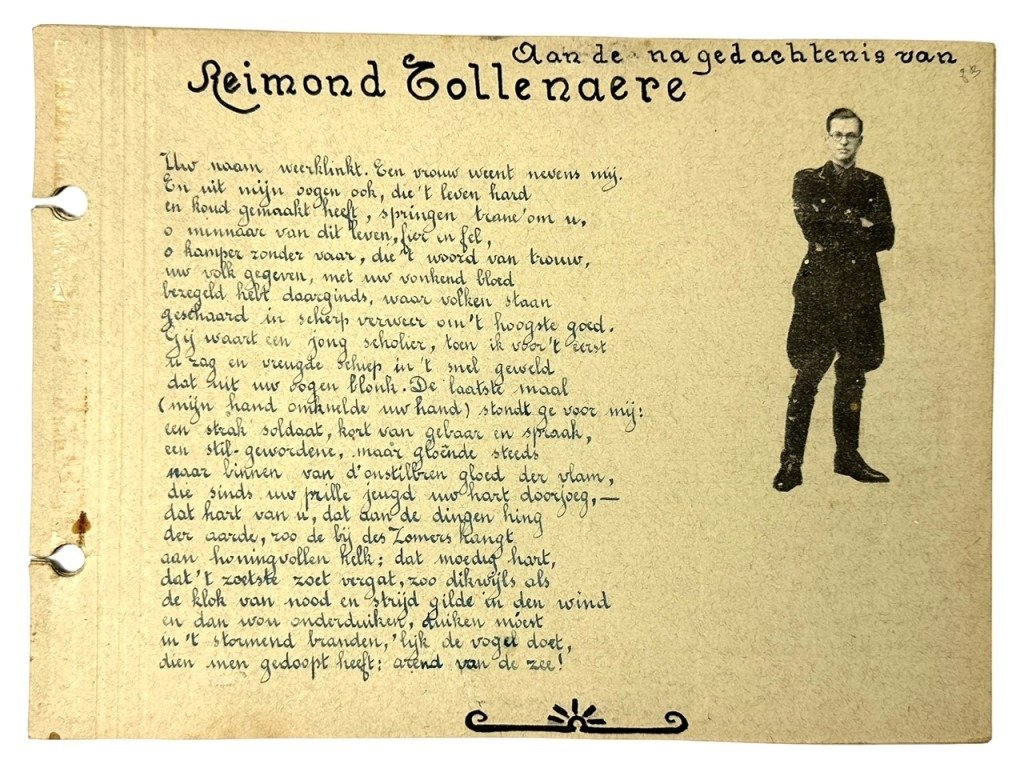 Aan de nagedachtenis van
Reimond Tollenaere
Uw naam weerklinkt. Een vrouw weent nevens mij.
En uit mijn oogen ook, die 't leven hard
en koud gemaakt heeft, springen trane' om u,
o minnaar van dit leven, fier en fel,
o kamper zonder vaar, die 't woord van trouw,
uw volk gegeven, met uw vonkend bloed
bezegeld hebt daarginds, waar volken staan
geschaard in scherp verweer om 't hoogste goed.
Gij waart een jong scholier, toen ik voor 't eerst
u zag en vreugde schiep in 't snel geweld
dat uit uw oogen blonk. De laatste maal
(mijn hand omknelde uw hand) stondt ge voor mij:
een strak soldaat, kort van gebaar en spraak,
een stil-gewordene, maar gloënde steeds
naar binnen van d'onstilbren gloed der vlam,
die sinds uw prille jeugd uw hart doorjoeg,—
dat hart van u, dat aan de dingen hing
der aarde, zoo de bij des Zomers hangt
aan honingvollen kelk; dat moedig hart,
dat 't zoetste zoet vergat, zoo dikwijls als
de klok van nood en strijd gilde in den wind
en dan wou onderduiken, duiken móest
in 't stormend branden, 'lijk de vogel doet,
dien men gedoopt heeft: arend van de zee!